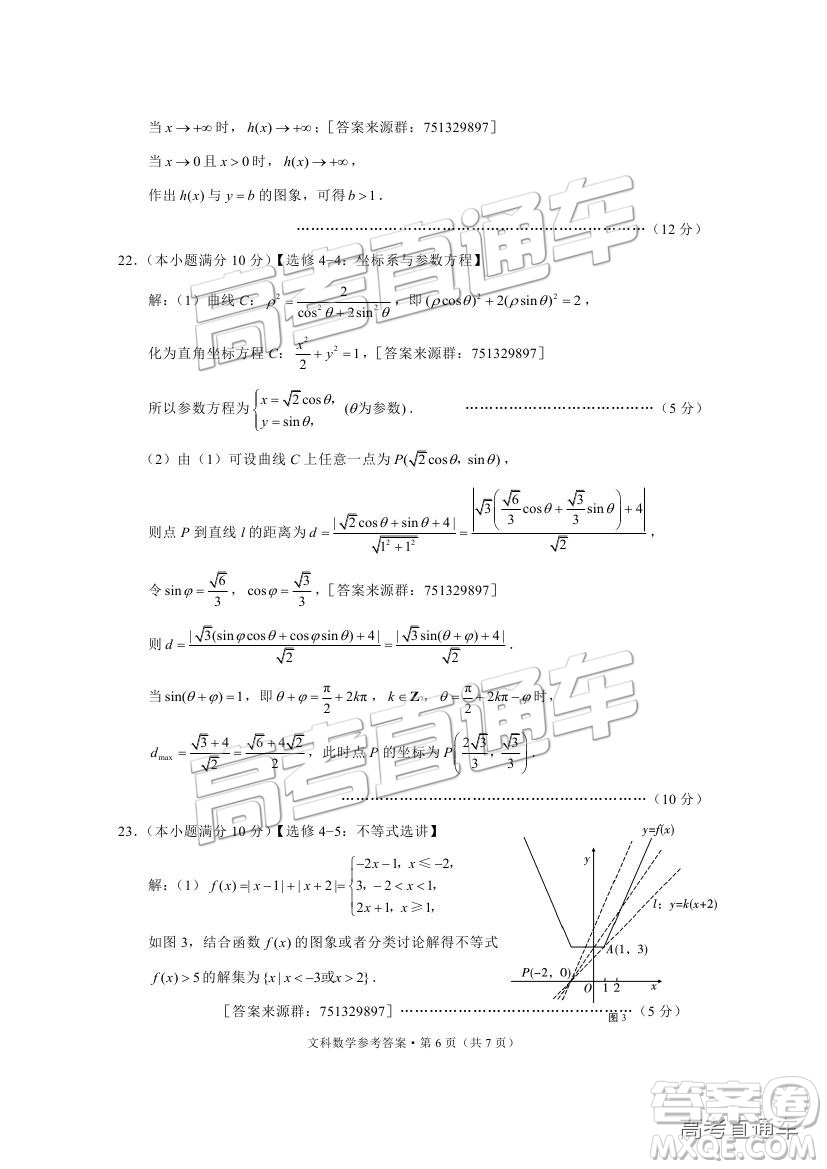 当 x→+∞ 时，h(x)→+∞；[答案来源群：751329897]
当 x→0 且 x>0 时，h(x)→+∞，
作出 h(x) 与 y=b 的图象，可得 b>1．
……………………………………………………………（12 分）
22．（本小题满分 10 分）【选修 4−4：坐标系与参数方程】
解：（1）曲线 C：ρ²=2/(cos²θ+2sin²θ)，即 (ρcosθ)²+2(ρsinθ)²=2，
化为直角坐标方程 C：x²/2+y²=1，[答案来源群：751329897]
所以参数方程为 {x=√2cosθ, y=sinθ, (θ为参数)． …………………………………（5 分）
（2）由（1）可设曲线 C 上任意一点为 P(√2cosθ，sinθ)，
则点 P 到直线 l 的距离为 d=|√2cosθ+sinθ+4|/√(1²+1²)=|√3(√6/3 cosθ+√3/3 sinθ)+4|/√2，
令 sinφ=√6/3，cosφ=√3/3，[答案来源群：751329897]
则 d=|√3(sinφcosθ+cosφsinθ)+4|/√2=|√3sin(θ+φ)+4|/√2．
当 sin(θ+φ)=1，即 θ+φ=π/2+2kπ，k∈Z，θ=π/2+2kπ−φ 时，
dmax=(√3+4)/√2=(√6+4√2)/2，此时点 P 的坐标为 P(2√3/3，√3/3)．
……………………………………………………（10 分）
23．（本小题满分 10 分）【选修 4−5：不等式选讲】
解：（1）f(x)=|x−1|+|x+2|={−2x−1，x≤−2，
3，−2<x<1，
2x+1，x≥1，
如图 3，结合函数 f(x) 的图象或者分类讨论解得不等式
f(x)>5 的解集为 {x|x<−3或x>2}．
y=f(x)
y
l：y=k(x+2)
A(1，3)
P(−2，0)
O 1 2 x
图 3
[答案来源群：751329897] ……………………………………………（5 分）
文科数学参考答案·第 6 页（共 7 页）
高考直通车
高考直通车
答案圈
高考直通车
MXQE.COM